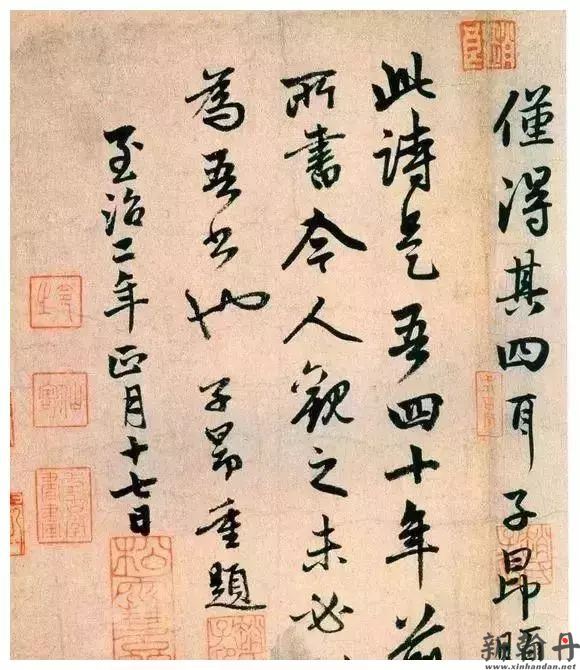 僅得其四耳子昂題
此詩是吾四十年前
所書今人觀之未必
為吾書也子昂重題
至治二年正月十七日
新翰丹
www.xinhandan.net